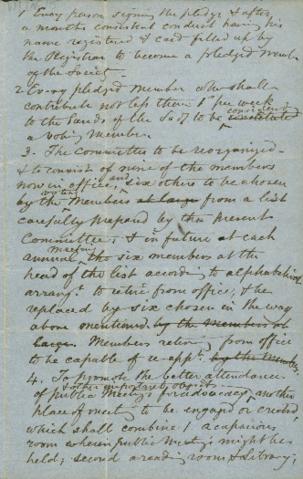 1 Every person signing the pledge & after
a months consistent conduct having his
name registered & card filled up by
the Registrar to become a pledged member
of the Society.
2 Every pledged member who shall
contribute not less than 1d per week
to the funds of the Socy to be considered
a voting member
3. The Committee to be reorganized
& to consist of nine of the members
now in office, and six others to be chosen
by the voting Members at large from a list
carefully prepared by the present
Committee, & in future at each
annual meeting the six members at the
head of the list according to alphabetical
arrangt to retire from office, & be
replaced by six chosen in the way
above mentioned by the members at
large. Members retiring from office
to be capable of re-appt. by the Members
4. To promote the better attendance
of public Meetings & other important objects
place of meetg to be engaged or erected,
which shall combine 1 a capacious
room wherein public Meetgs might be
held; second a reading room & Library;